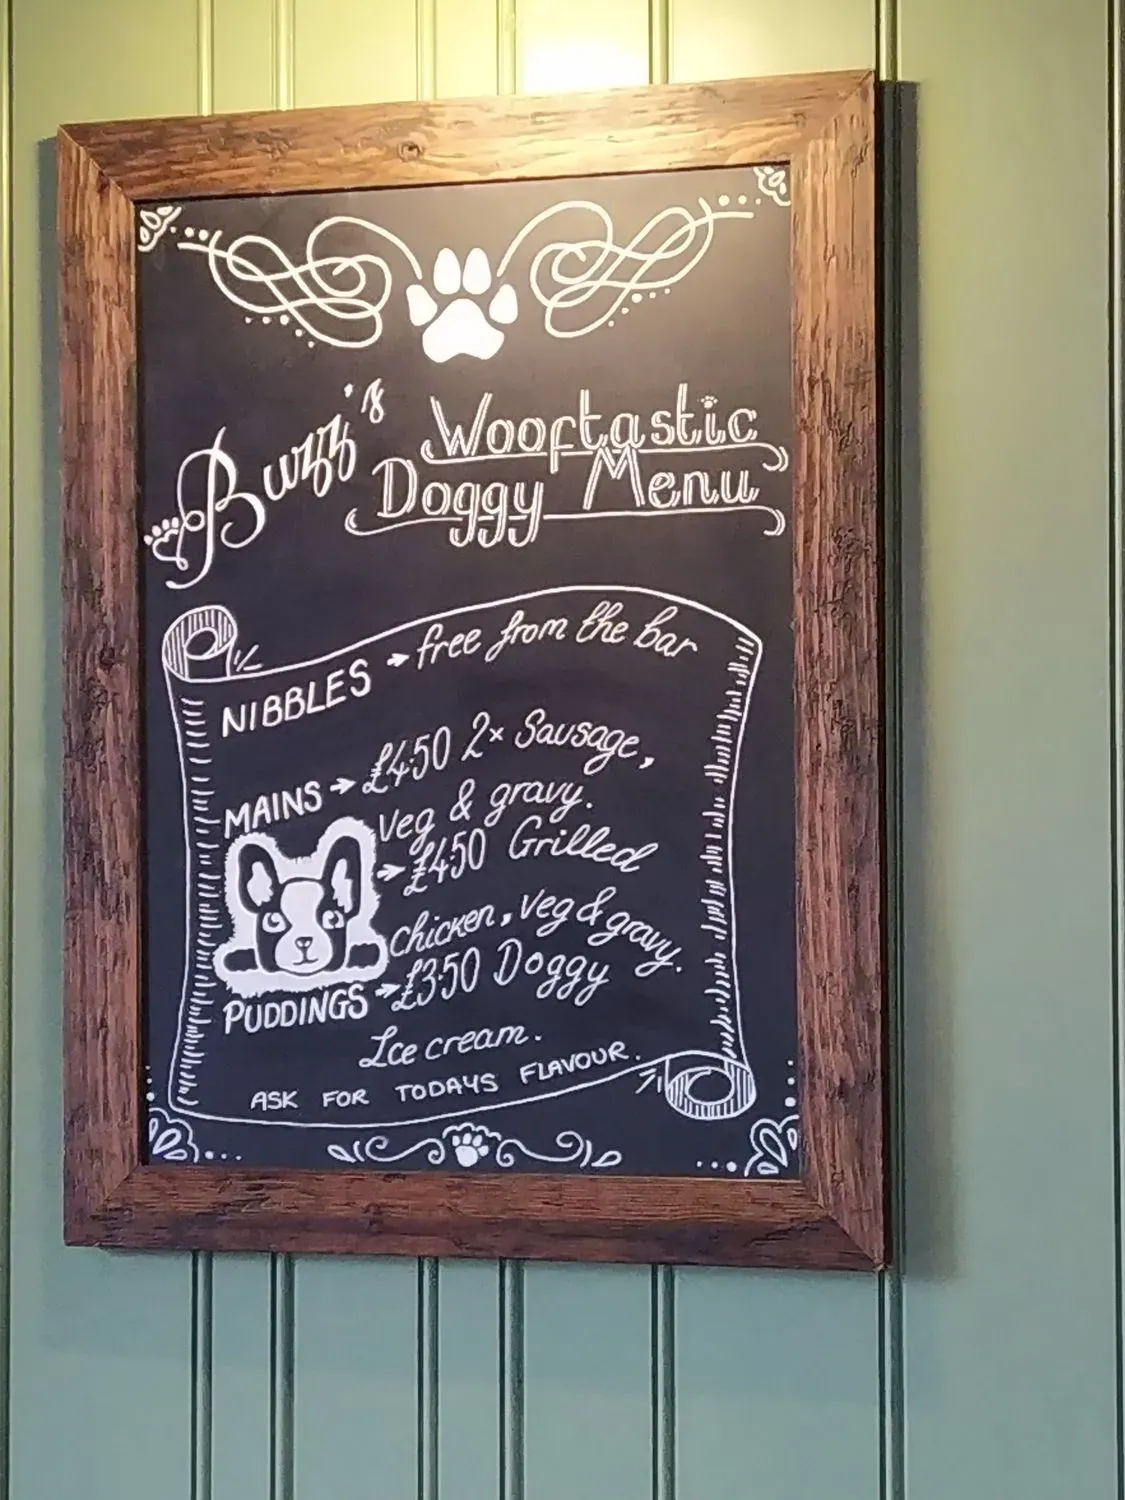 Buzz's Wooftastic
Doggy Menu
NIBBLES → free from the bar
MAINS → £4.50 2x Sausage,
veg & gravy.
→ £4.50 Grilled
chicken, veg & gravy.
PUDDINGS → £3.50 Doggy
Ice cream.
ASK FOR TODAYS FLAVOUR.